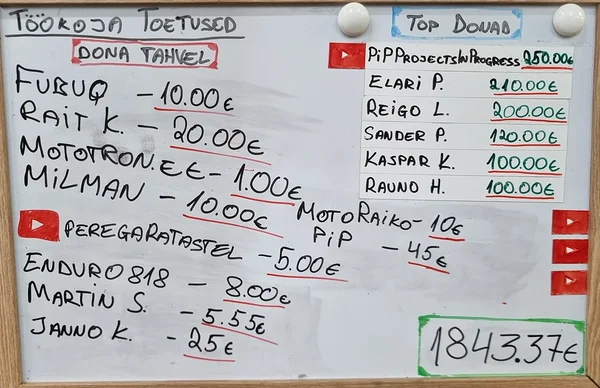 TÖÖKOJA TOETUSED
DONA TAHVEL
FUBUQ - 10.00€
RAIT K. - 20.00€
MOTOTRON.EE - 1.00€
MILMAN - 10.00€
PEREGARATASTEL - 5.00€
ENDURO818 - 8.00€
MARTIN S. - 5.55€
JANNO K. - 25€
MOTORAIKO - 10€
PiP - 45€
TOP DONAD
PiPPROJECTSINPROGRESS 250.00€
ELARI P. 210.00€
REIGO L. 200.00€
SANDER P. 120.00€
KASPAR K. 100.00€
RAUNO H. 100.00€
1843.37€